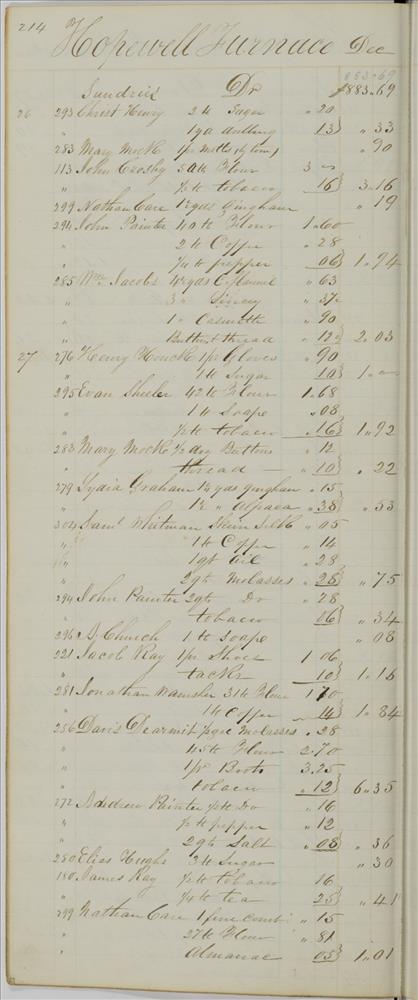 214 Hopewell Furnace Dec
883.69
Sundries Dr $883.69
26 293 Christ Henry 2 lb Sugar " 20
" 1 yd 13 " 33
283 Mary Mock 1 pr Mitts " 90
113 John Crosby Flour 3 "
" ½ lb tobacco 16 3.16
299 Nathan Care gingham " 19
294 John Painter 40 lb Flour 1.60
" 2 lb Coffee " 28
" ¼ lb pepper 06 1.94
285 Wm Jacobs 4 yds C. flannel " 63
" 3 " " 37½
" 1 " " 90
" Butts & thread " 12½ 2.03
27 276 Henry Houck 1 pr Gloves " 90
" 1 lb Sugar 10 1."
295 Evan Sheeler 42 lb Flour 1.68
" 1 lb Soape " 08
" ½ lb tobacco .16 1.92
283 Mary Mock ½ doz Buttons " 12
" thread — " 10 " 22
279 Lydia Graham 1¼ yds gingham " 15
" 1½ " Alpaca " 38 " 53
304 Saml Whitman Skein Silk " 05
" 1 lb Coffee " 14
" 1 qt Oil " 28
" 2 qts Molasses " 28 " 75
294 John Painter 2 qts Do " 28
" tobacco 06 " 34
296 A. Church 1 lb Soape " 08
221 Jacob Kay 1 pr Shoes 1.06
" tacks 10 1.16
281 Jonathan Wamsher 31 lb Flour 1.70
" 1 lb Coffee 14 1.84
256 Davis Dearmit Molasses " 28
" 45 lb Flour 2.70
" 1 pr Boots 3.25
" tobacco " 12 6.35
272 Andrew Painter ½ lb Do " 16
" ½ lb pepper " 12
" 2 qts Salt " 08 " 36
280 Elias Hughs 3 lb Sugar " 30
180 James Kay ½ lb tobacco 16
" ¼ lb tea 25 " 41
299 Nathan Care 1 fine comb " 15
" 27 lb Flour " 81
" Almanac 05 1.01